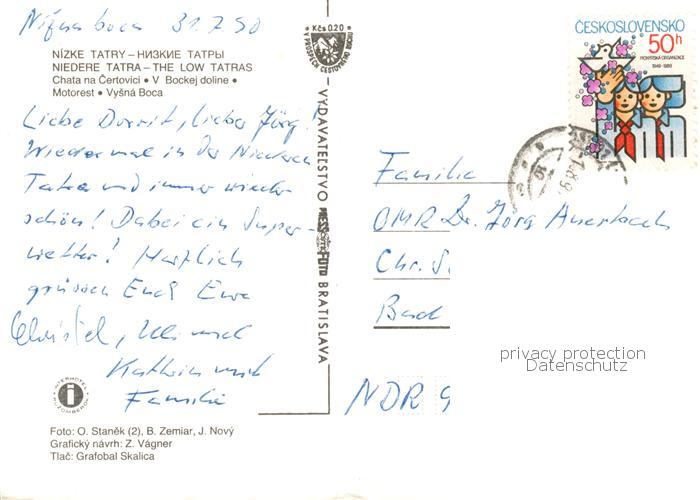 Nižna boca 31.7.90
NÍZKE TATRY – НИЗКИЕ ТАТРЫ
NIEDERE TATRA – THE LOW TATRAS
Chata na Čertovici • V Bockej doline •
Motorest • Vyšná Boca
Liebe Dorrit, lieber Jörg!
Wieder mal in der Niederen
Tatra und immer wieder
schön! Dabei ein Super-
wetter! Herzlich
grüssen Euch Eure
Christel, Uli und
Kathrin mit
Familie
INTERHOTEL
Foto: O. Staněk (2), B. Zemiar, J. Nový
Grafický návrh: Z. Vágner
Tlač: Grafobal Skalica
Kčs 0,20
V PROSPECH CESTOVNÉHO RUCHU
VYDAVATEĽSTVO PRESSFOTO BRATISLAVA
ČESKOSLOVENSKO
50h
PIONÝRSKA ORGANIZACE
1949-1989
Familie
OMR Dr. Jörg Auerbach
Chr. S.
Bad
privacy protection
Datenschutz
NDR 9